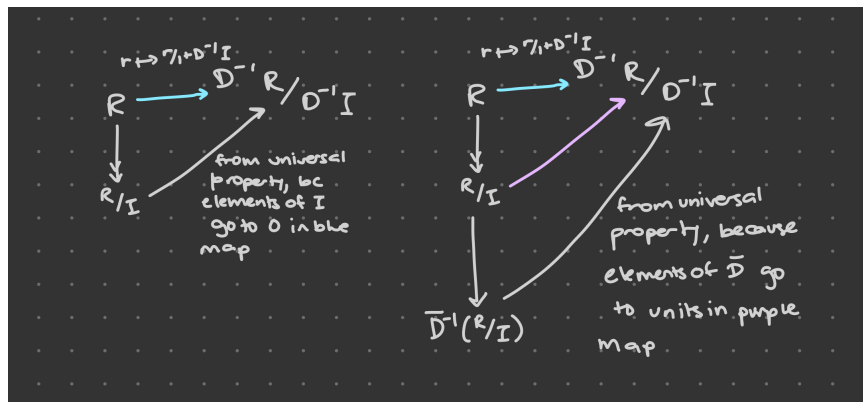 r ↦ r/1 + D⁻¹I
R
D⁻¹R/D⁻¹I
R/I
from universal
property, bc
elements of I
go to 0 in blue
map
r ↦ r/1 + D⁻¹I
R
D⁻¹R/D⁻¹I
R/I
D̄⁻¹(R/I)
from universal
property, because
elements of D̄ go
to units in purple
map